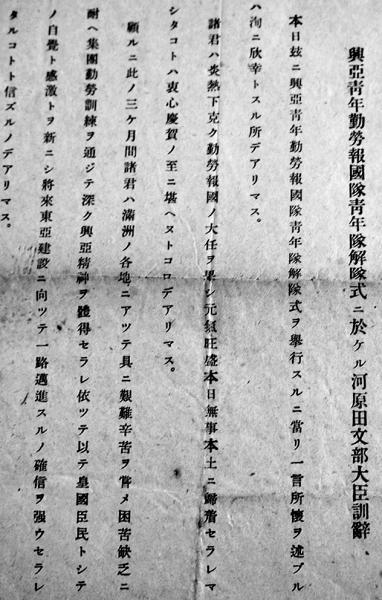 興亞靑年勤勞報國隊靑年隊解隊式ニ於ケル河原田文部大臣訓辭
本日玆ニ興亞靑年勤勞報國隊靑年隊解隊式ヲ擧行スルニ當リ一言所懷ヲ述ブル
ハ洵ニ欣幸トスル所デアリマス。
諸君ハ炎熱下克ク勤勞報國ノ大任ヲ果シ元氣旺盛本日無事本土ニ歸着セラレマ
シタコトハ衷心慶賀ノ至ニ堪ヘヌトコロデアリマス。
顧ルニ此ノ三ケ月間諸君ハ滿洲ノ各地ニアツテ具ニ艱難辛苦ヲ嘗メ困苦缺乏ニ
耐ヘ集團勤勞訓練ヲ通ジテ深ク興亞精神ヲ體得セラレ依ツテ以テ皇國臣民トシテ
ノ自覺ト感激トヲ新ニシ將來東亞建設ニ向ツテ一路邁進スルノ確信ヲ强ウセラレ
タルコトト信ズルノデアリマス。